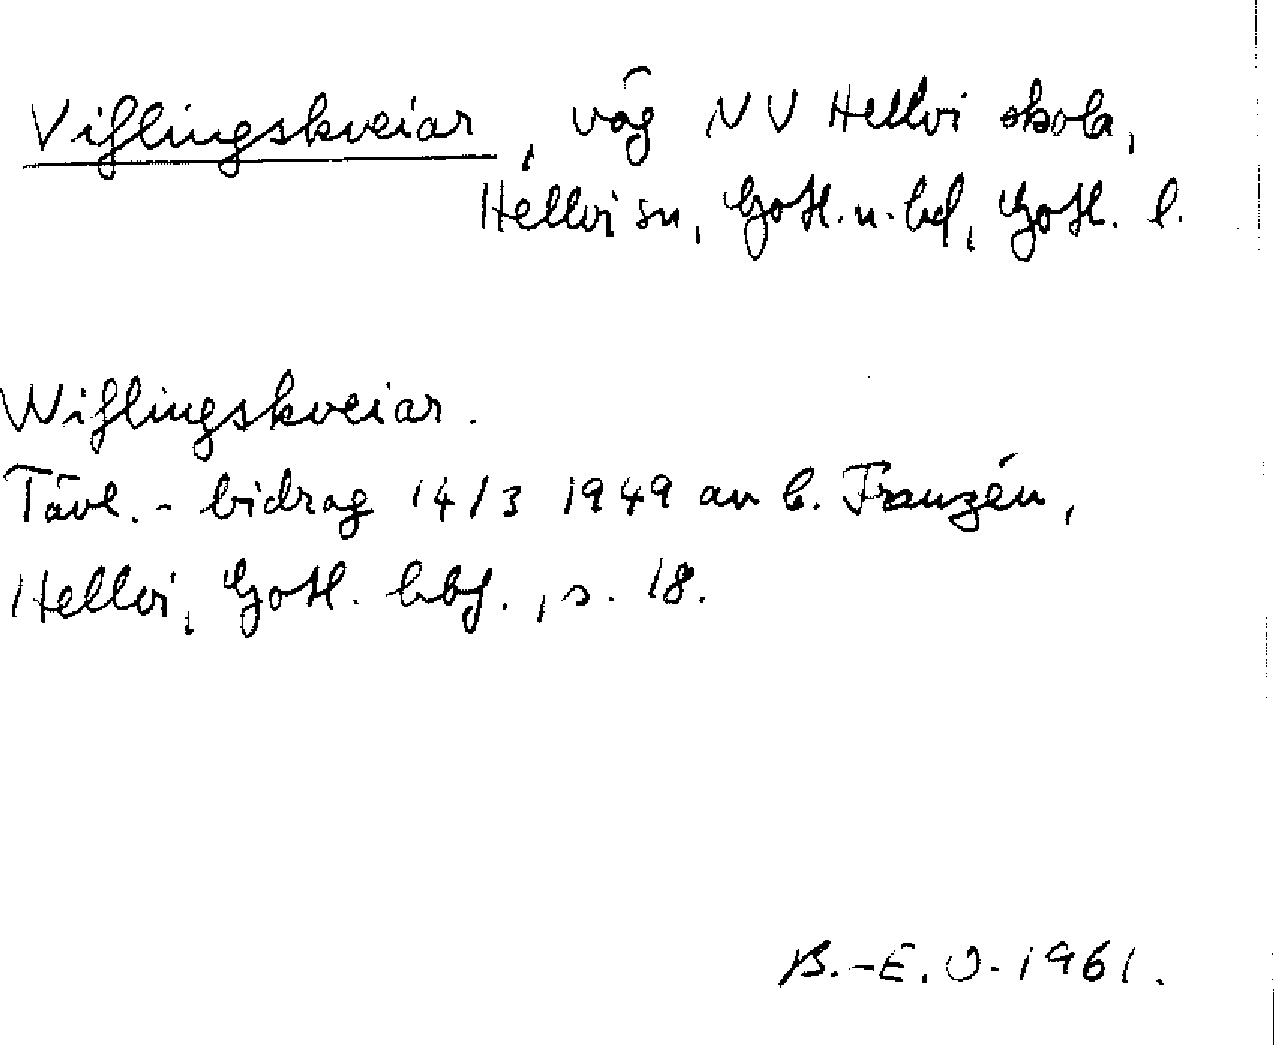 Viflingskveiar, väg NV Hellvi skola,
Hellvi sn, Gotl. n. hd, Gotl. l.
Wiflingskveiar.
Tävl.-bidrag 14/3 1949 av C. Franzén,
Hellvi, Gotl. hbf., s. 18.
B.-E. O. 1961.